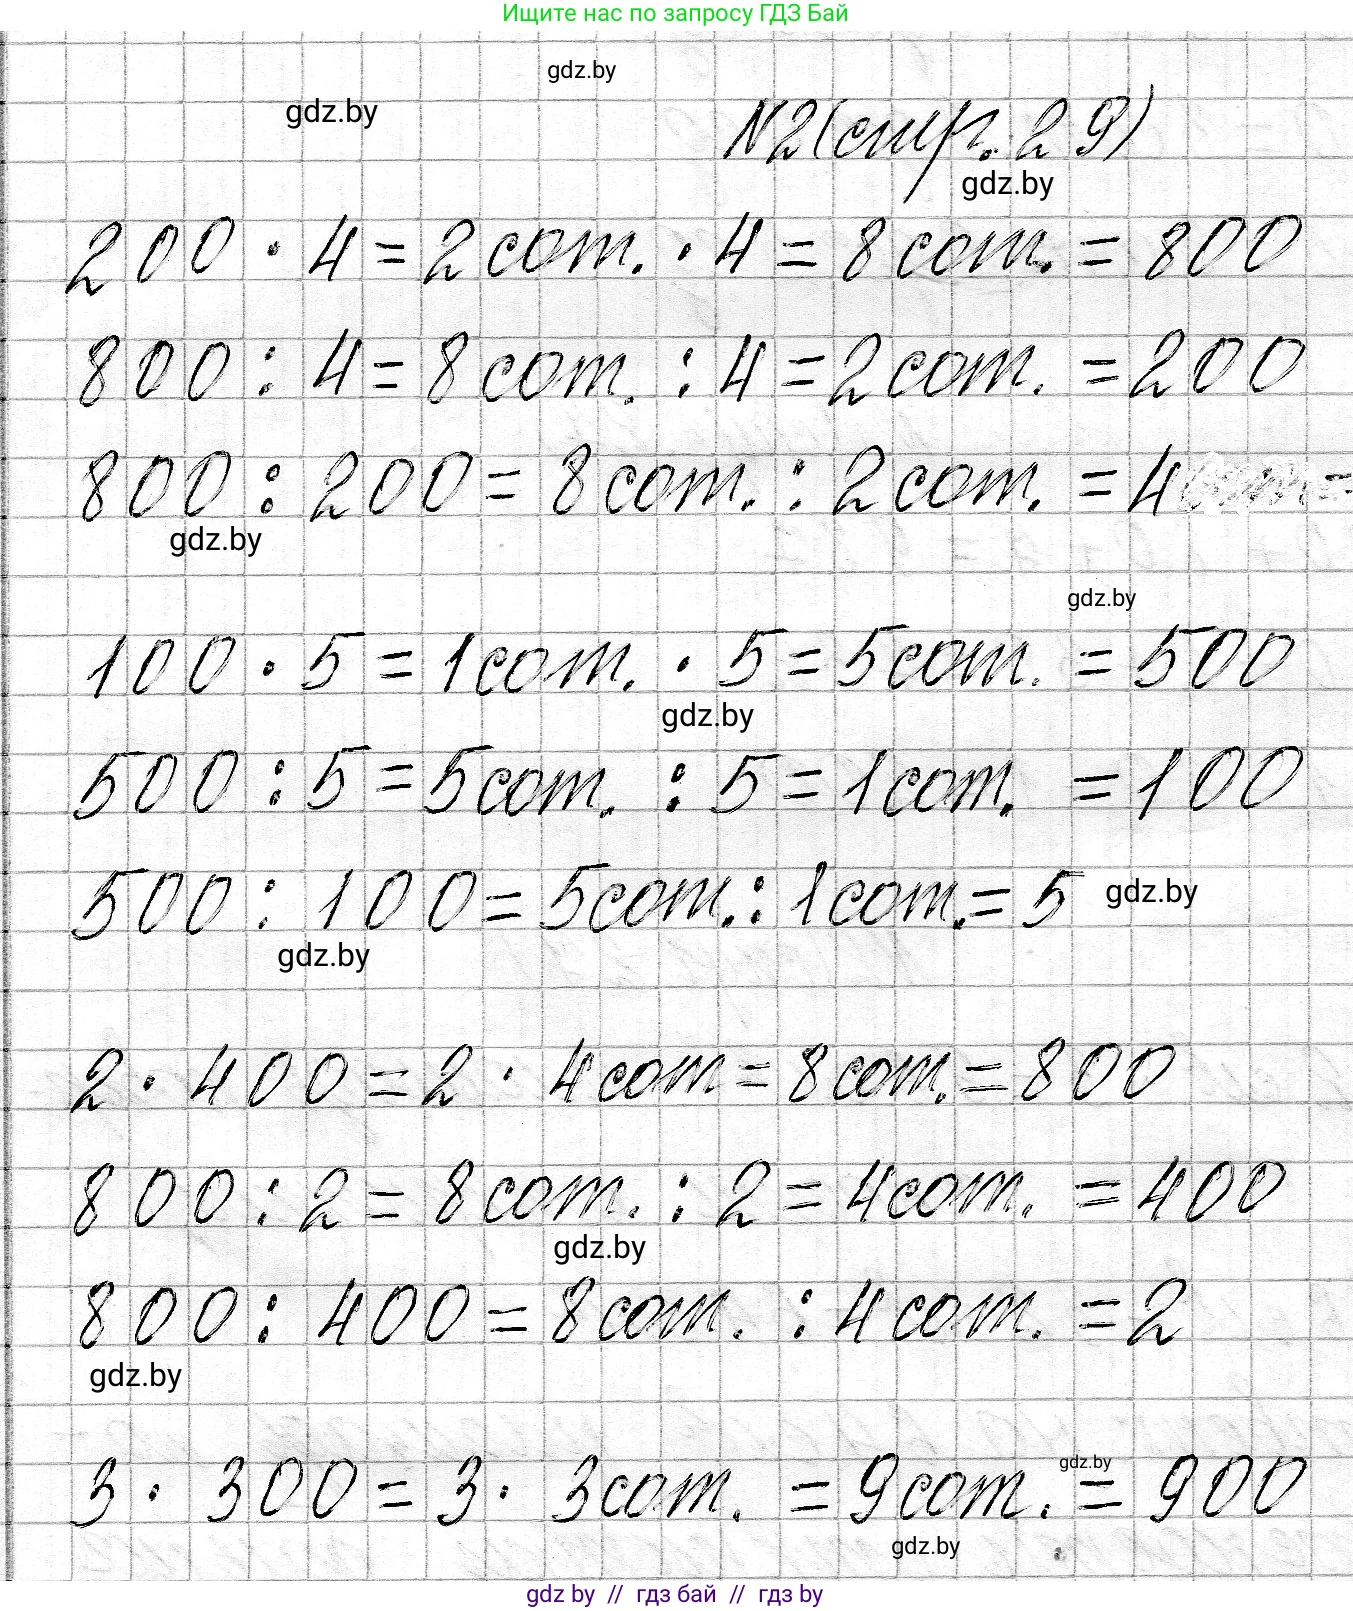 Ищите нас по запросу ГДЗ Бай
gdz.by
gdz.by
N2 (стр. 29)
gdz.by
200 · 4 = 2 сот. · 4 = 8 сот. = 800
800 : 4 = 8 сот. : 4 = 2 сот. = 200
800 : 200 = 8 сот. : 2 сот. = 4
gdz.by
gdz.by
100 · 5 = 1 сот. · 5 = 5 сот. = 500
gdz.by
500 : 5 = 5 сот. : 5 = 1 сот. = 100
500 : 100 = 5 сот. : 1 сот. = 5 gdz.by
gdz.by
2 · 400 = 2 · 4 сот = 8 сот. = 800
800 : 2 = 8 сот. : 2 = 4 сот. = 400
gdz.by
800 : 400 = 8 сот. : 4 сот. = 2
gdz.by
gdz.by
3 · 300 = 3 · 3 сот. = 9 сот. = 900
gdz.by
gdz by // гдз бай // гдз by